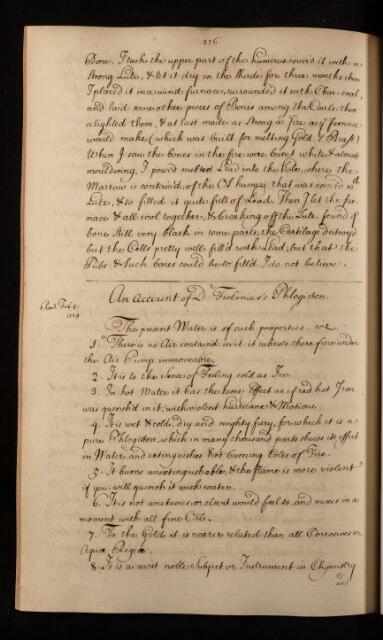 276
Bone. I took the upper part of the humerus cover'd it with a
strong Lute, & let it dry in the shade for three months, then
I placed it in a wind furnace, surrounded it with Char-coal,
and laid some other pieces of Bones among the Coals, then
alighted them, & at last made as strong a Fire as my furnace
would make (which was built for melting Gold & Brass)
When I saw the bones in the fire were burnt white & almost
mouldering, I pour'd melted Lead into the hole, where the
Marrow is contain'd, of the Os humeri that was cover'd wth
Lute, & so filled it quite full of Lead. Then I let the fur-
nace & all cool together, & breaking off the Lute found ye
bone still very black in some parts, the Cartilage destroyd
but the Cells pretty well fill'd with Lead, but that the
Tibs & such bones could be so fill'd I do not believe.
An Account of Dr Frobenius's Phlogiston.
Read Feb.
1729
The present Water is of such properties. viz.
1. There is no Air contain'd in it it subsists therefore under
the Air Pump immoveable.
2. It is to the Sense of Feeling cold as Ice
3. In hot Water it has the same Effect as if red hot Iron
was quench'd in it, with violent hurricane & Motions.
4. It is wet & cold, dry and mighty fiery, for which it is a
pure Phlogiston, which in many thousand parts shews its effect
in Water, and extinguishes hot burning Coles of Fire.
5. It burns unextinguishable, & the flame is more violent
if you will quench it with water.
6. It is not unctuous, or else it would feel so, and mixes in a
moment with all fine Oils.
7. To the Gold it is nearer related than all Corrosives or
Aqua Regia.
8. It is a most noble Subject or Instrument in Chymistry
and